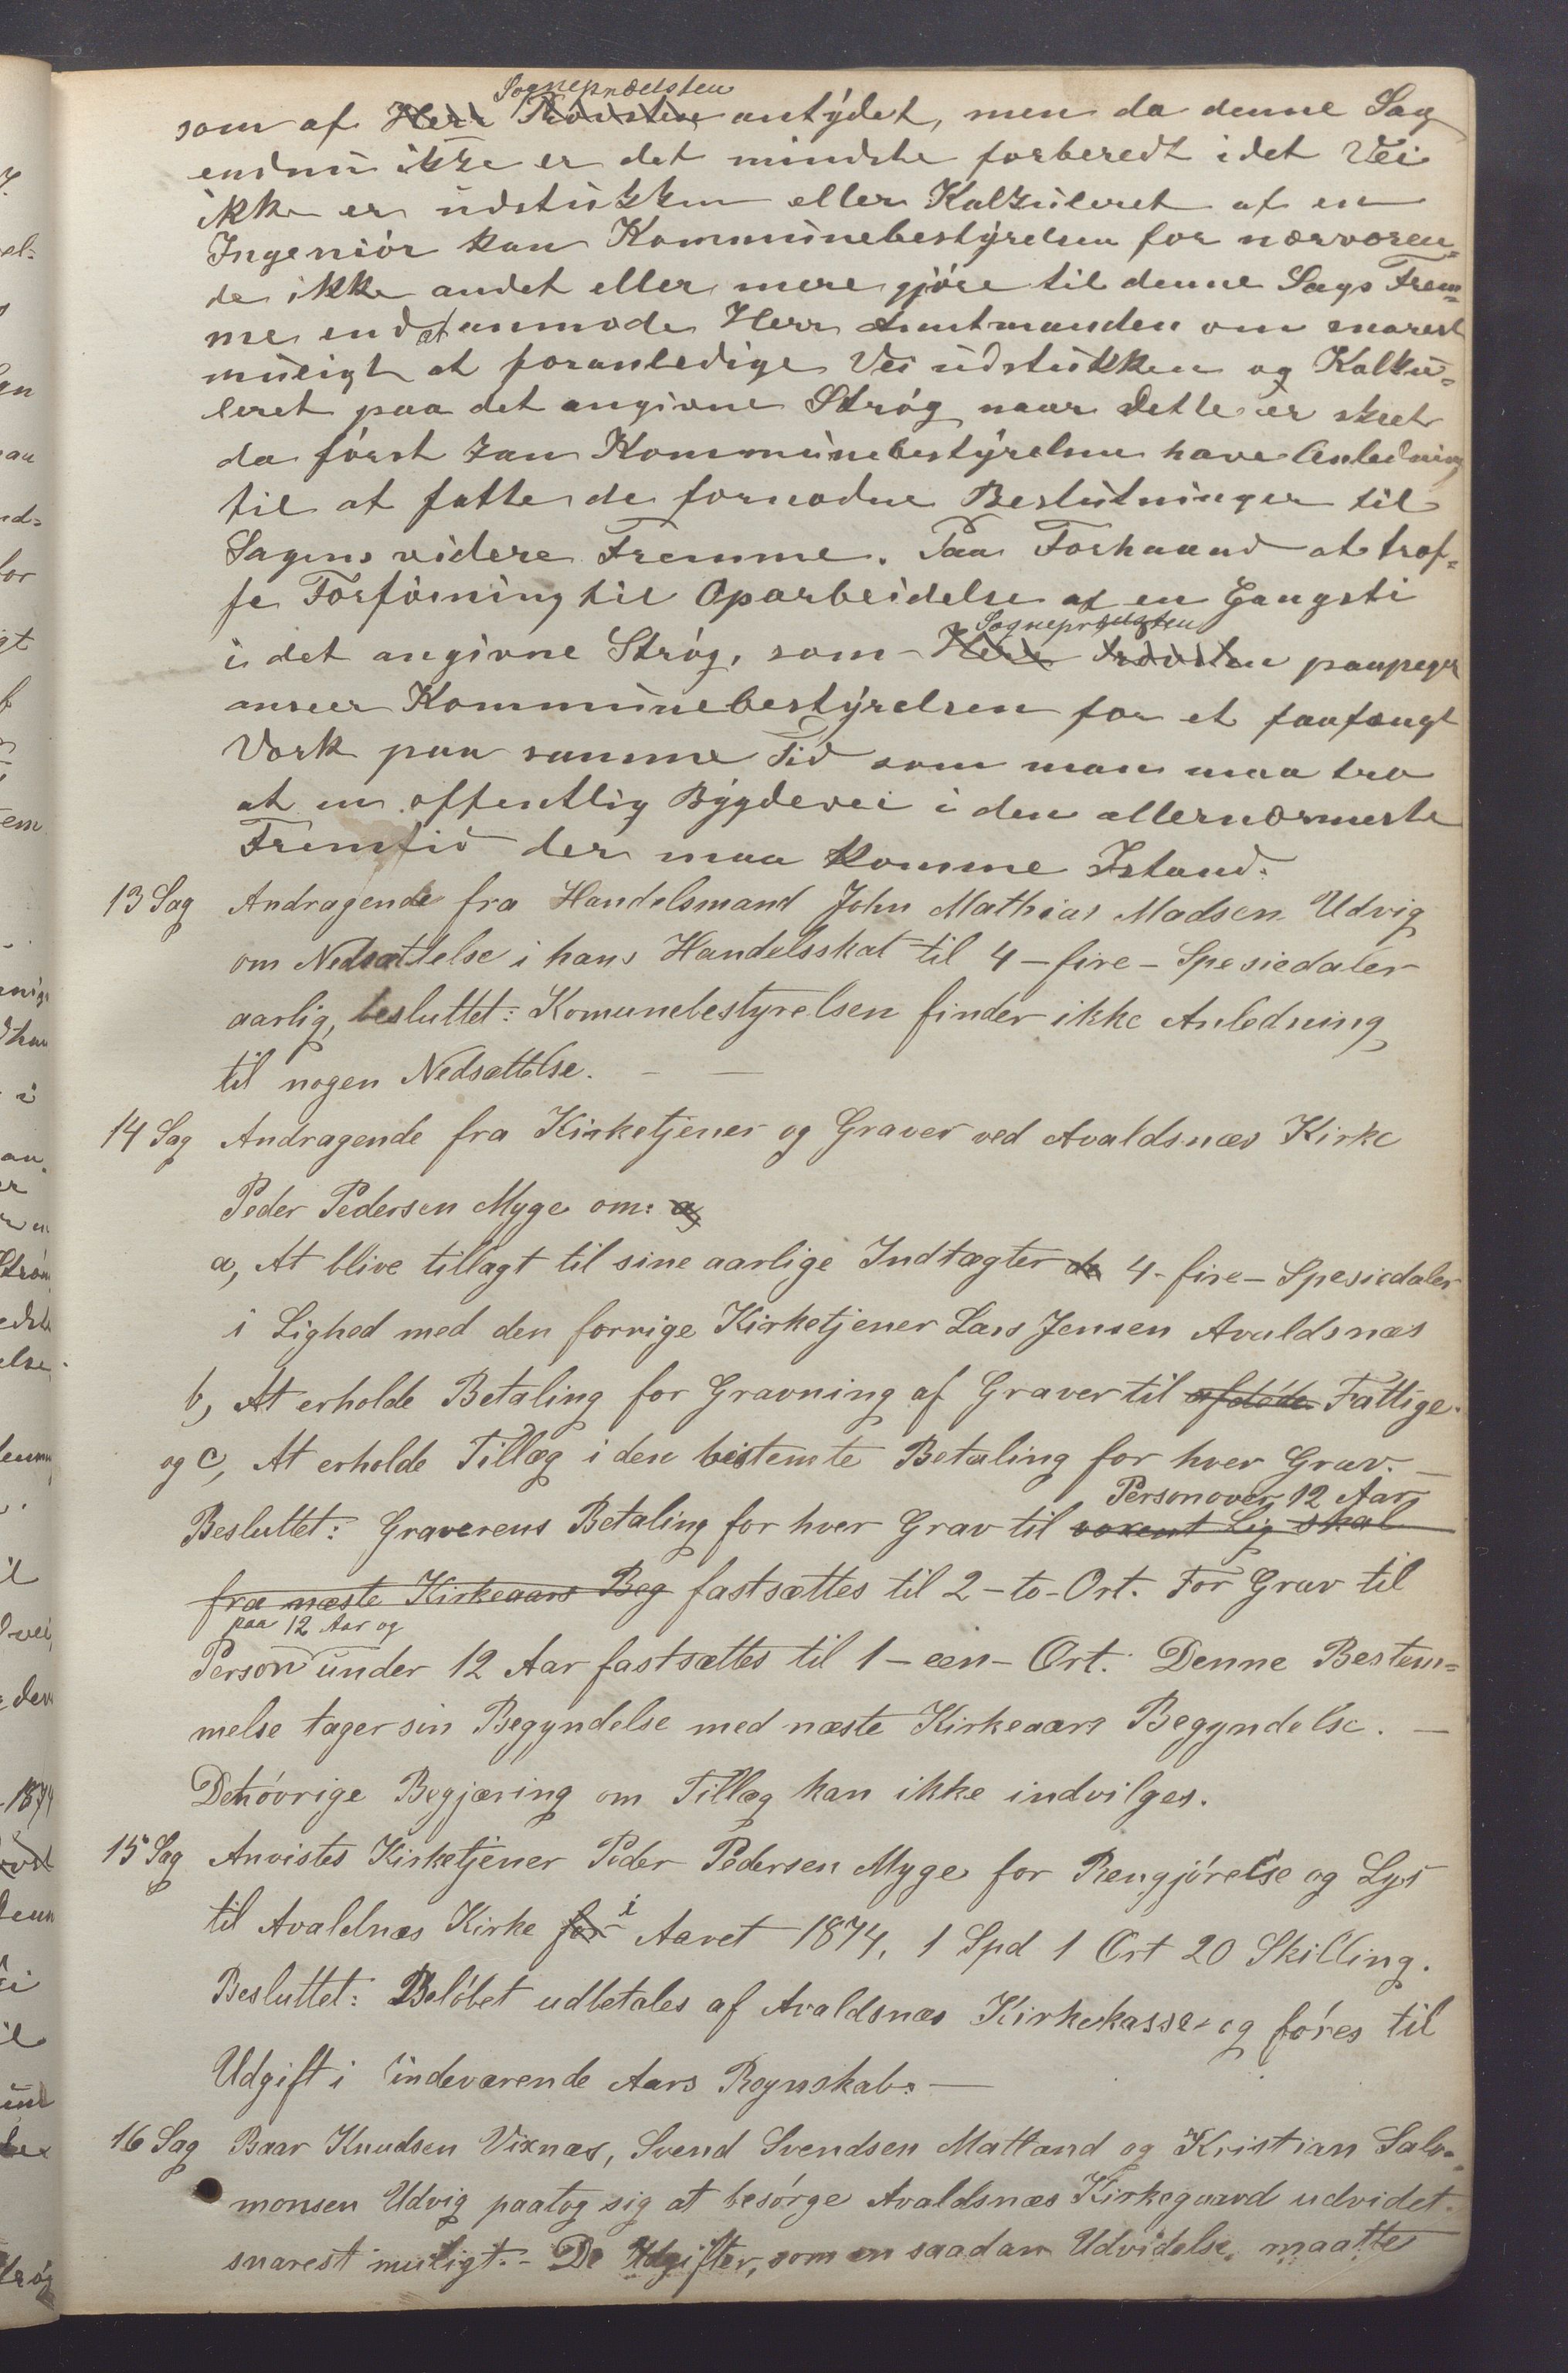 som af Herr Provsten Sognepræsten antÿdet, men da denne Sag
endnu ikke er det mindste forberedt idet Vei
ikke er udstukken eller Kalkuleret af en
Ingeniör kan Kommunebestÿrelsen for nærværen-
de ikke andet eller mere gjöre til denne Sags Frem-
me end at anmode Herr Amtmanden om snarest
muligt at foranledige Vei udstukken og Kalku-
leret paa det angivne Strög naar dette er skeet
da först kan Kommunebestÿrelsen have Anledning
til at fatte de fornødne Beslutninger til
Sagens videre Fremme. Paa Forhaand at træf-
fe Forföining til Oparbeidelse af en Gangsti
i det angivne Strög, som Herr Provsten Sognepræsten paapeger
anseer Kommunebestÿrelsen for et faafængt
Værk paa samme Tid som man maa tro
at en offentlig Bÿgdevei i den allernærmeste
Fremtid der maa komme Istand.
13 Sag Andragende fra Handelsmand John Mathias Madsen Udvig
om Nedsættelse i hans Handelsskat til 4 - fire - Spesiedaler
aarlig, besluttet: Komunebestyrelsen finder ikke Anledning
til nogen Nedsættelse. - -
14 Sag Andragende fra Kirketjener og Graver ved Avaldsnæs Kirke
Peder Pedersen Myge om: a,
a, At blive tillagt til sine aarlige Indtægter de 4 - fire - Spesiedaler
i Lighed med den forrige Kirketjener Lars Jensen Avaldsnæs
b, At erholde Betaling for Gravning af Graver til afdøde Fattige.
og c, At erholde Tillæg i den bestemte Betaling for hver Grav. -
Personover 12 Aar
Besluttet: Graverens Betaling for hver Grav til voxent Lig skal
fra næste Kirkeaars Beg fastsættes til 2 - to - Ort. For Grav til
paa 12 Aar og
Person under 12 Aar fastsættes til 1 - een - Ort. Denne Bestem-
melse tager sin Begyndelse med næste Kirkeaars Begyndelse. -
Detövrige Begjæring om Tillæg kan ikke indvilges.
15 Sag Anvistes Kirketjener Peder Pedersen Myge for Rengjörelse og Lys
til Avaldnæs Kirke for i Aaret 1874, 1 Spd 1 Ort 20 Skilling.
Besluttet: Belöbet udbetales af Avaldsnæs Kirkekasse og föres til
Udgift i indeværende Aars Regnskab. -
16 Sag Baar Knudsen Vixnæs, Svend Svendsen Matland og Kristian Salo-
monsen Udvig paatog sig at besörge Avaldsnæs Kirkegaard udvidet
snarest muligt. - De Udgifter, som en saadan Udvidelse maatte